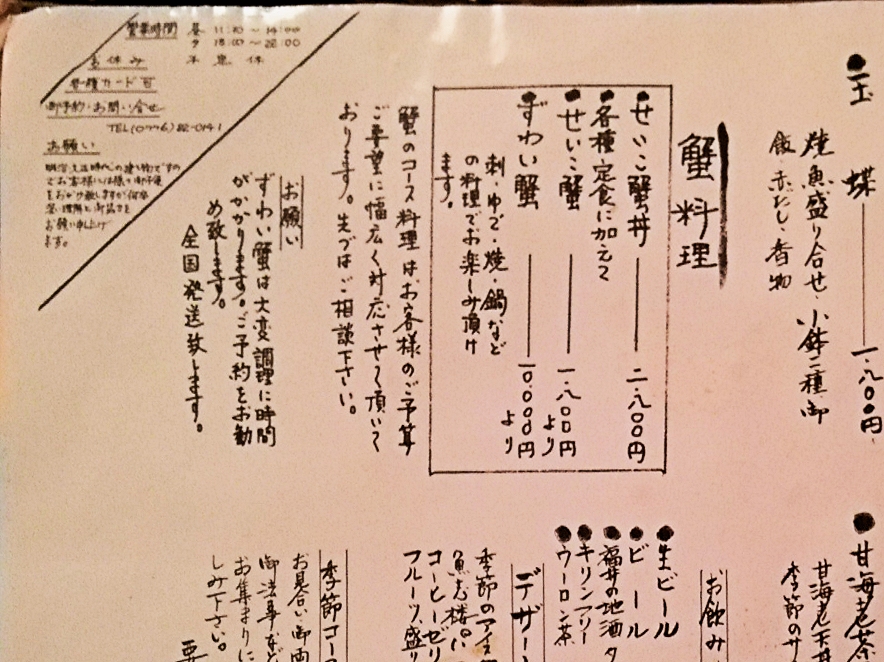 ●玉　蝶　一.八〇〇円
焼魚盛り合せ・小鉢二種・御
飯・赤だし・香物
蟹料理
●せいこ蟹丼　二.八〇〇円
●各種定食に加えて
●せいこ蟹　一.八〇〇円より
●ずわい蟹　一〇.〇〇〇円より
刺・ゆで・焼・鍋など
の料理でお楽しみ頂け
ます。
蟹のコース料理はお客様のご予算
ご要望に幅広く対応させて頂いて
おります。先づはご相談下さい。
お願い
ずわい蟹は大変調理に時間
がかかります。ご予約をお勧
め致します。
全国発送致します。
営業時間　昼 11:30〜14:00
夕 18:00〜22:00
お休み　不定休
各種カード可
御予約・お問い合せ
TEL(0776)82-0141
お願い
お願い申し上げ
ます。
●甘海老茶
甘海老天丼
季節のサ
お飲み
●生ビール
●ビール
●福井の地酒
●キリンフリー
●ウーロン茶
デザー
季節のアイ
魚志楼パ
コーヒーゼリ
フルーツ盛り
季節コー
お見合い御両
御法事など
お集まりに
しみ下さい。